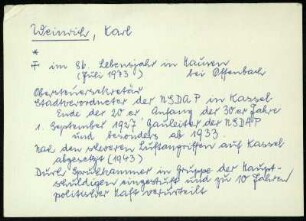 Weinrich, Karl
*
† im 86. Lebensjahr in Hausen
(Juli 1973) bei Offenbach
Obersteuersekretär
Stadtverordneter der NSDAP in Kassel
Ende der 20er Anfang der 30er Jahre
1. September 1927 Gauleiter der NSDAP
und besonders ab 1933.
Nach den schweren Luftangriffen auf Kassel
abgesetzt (1943)
Durch Spruchkammer in Gruppe der Haupt-
schuldigen eingestuft und zu 10 Jahren
politischer Haft verurteilt